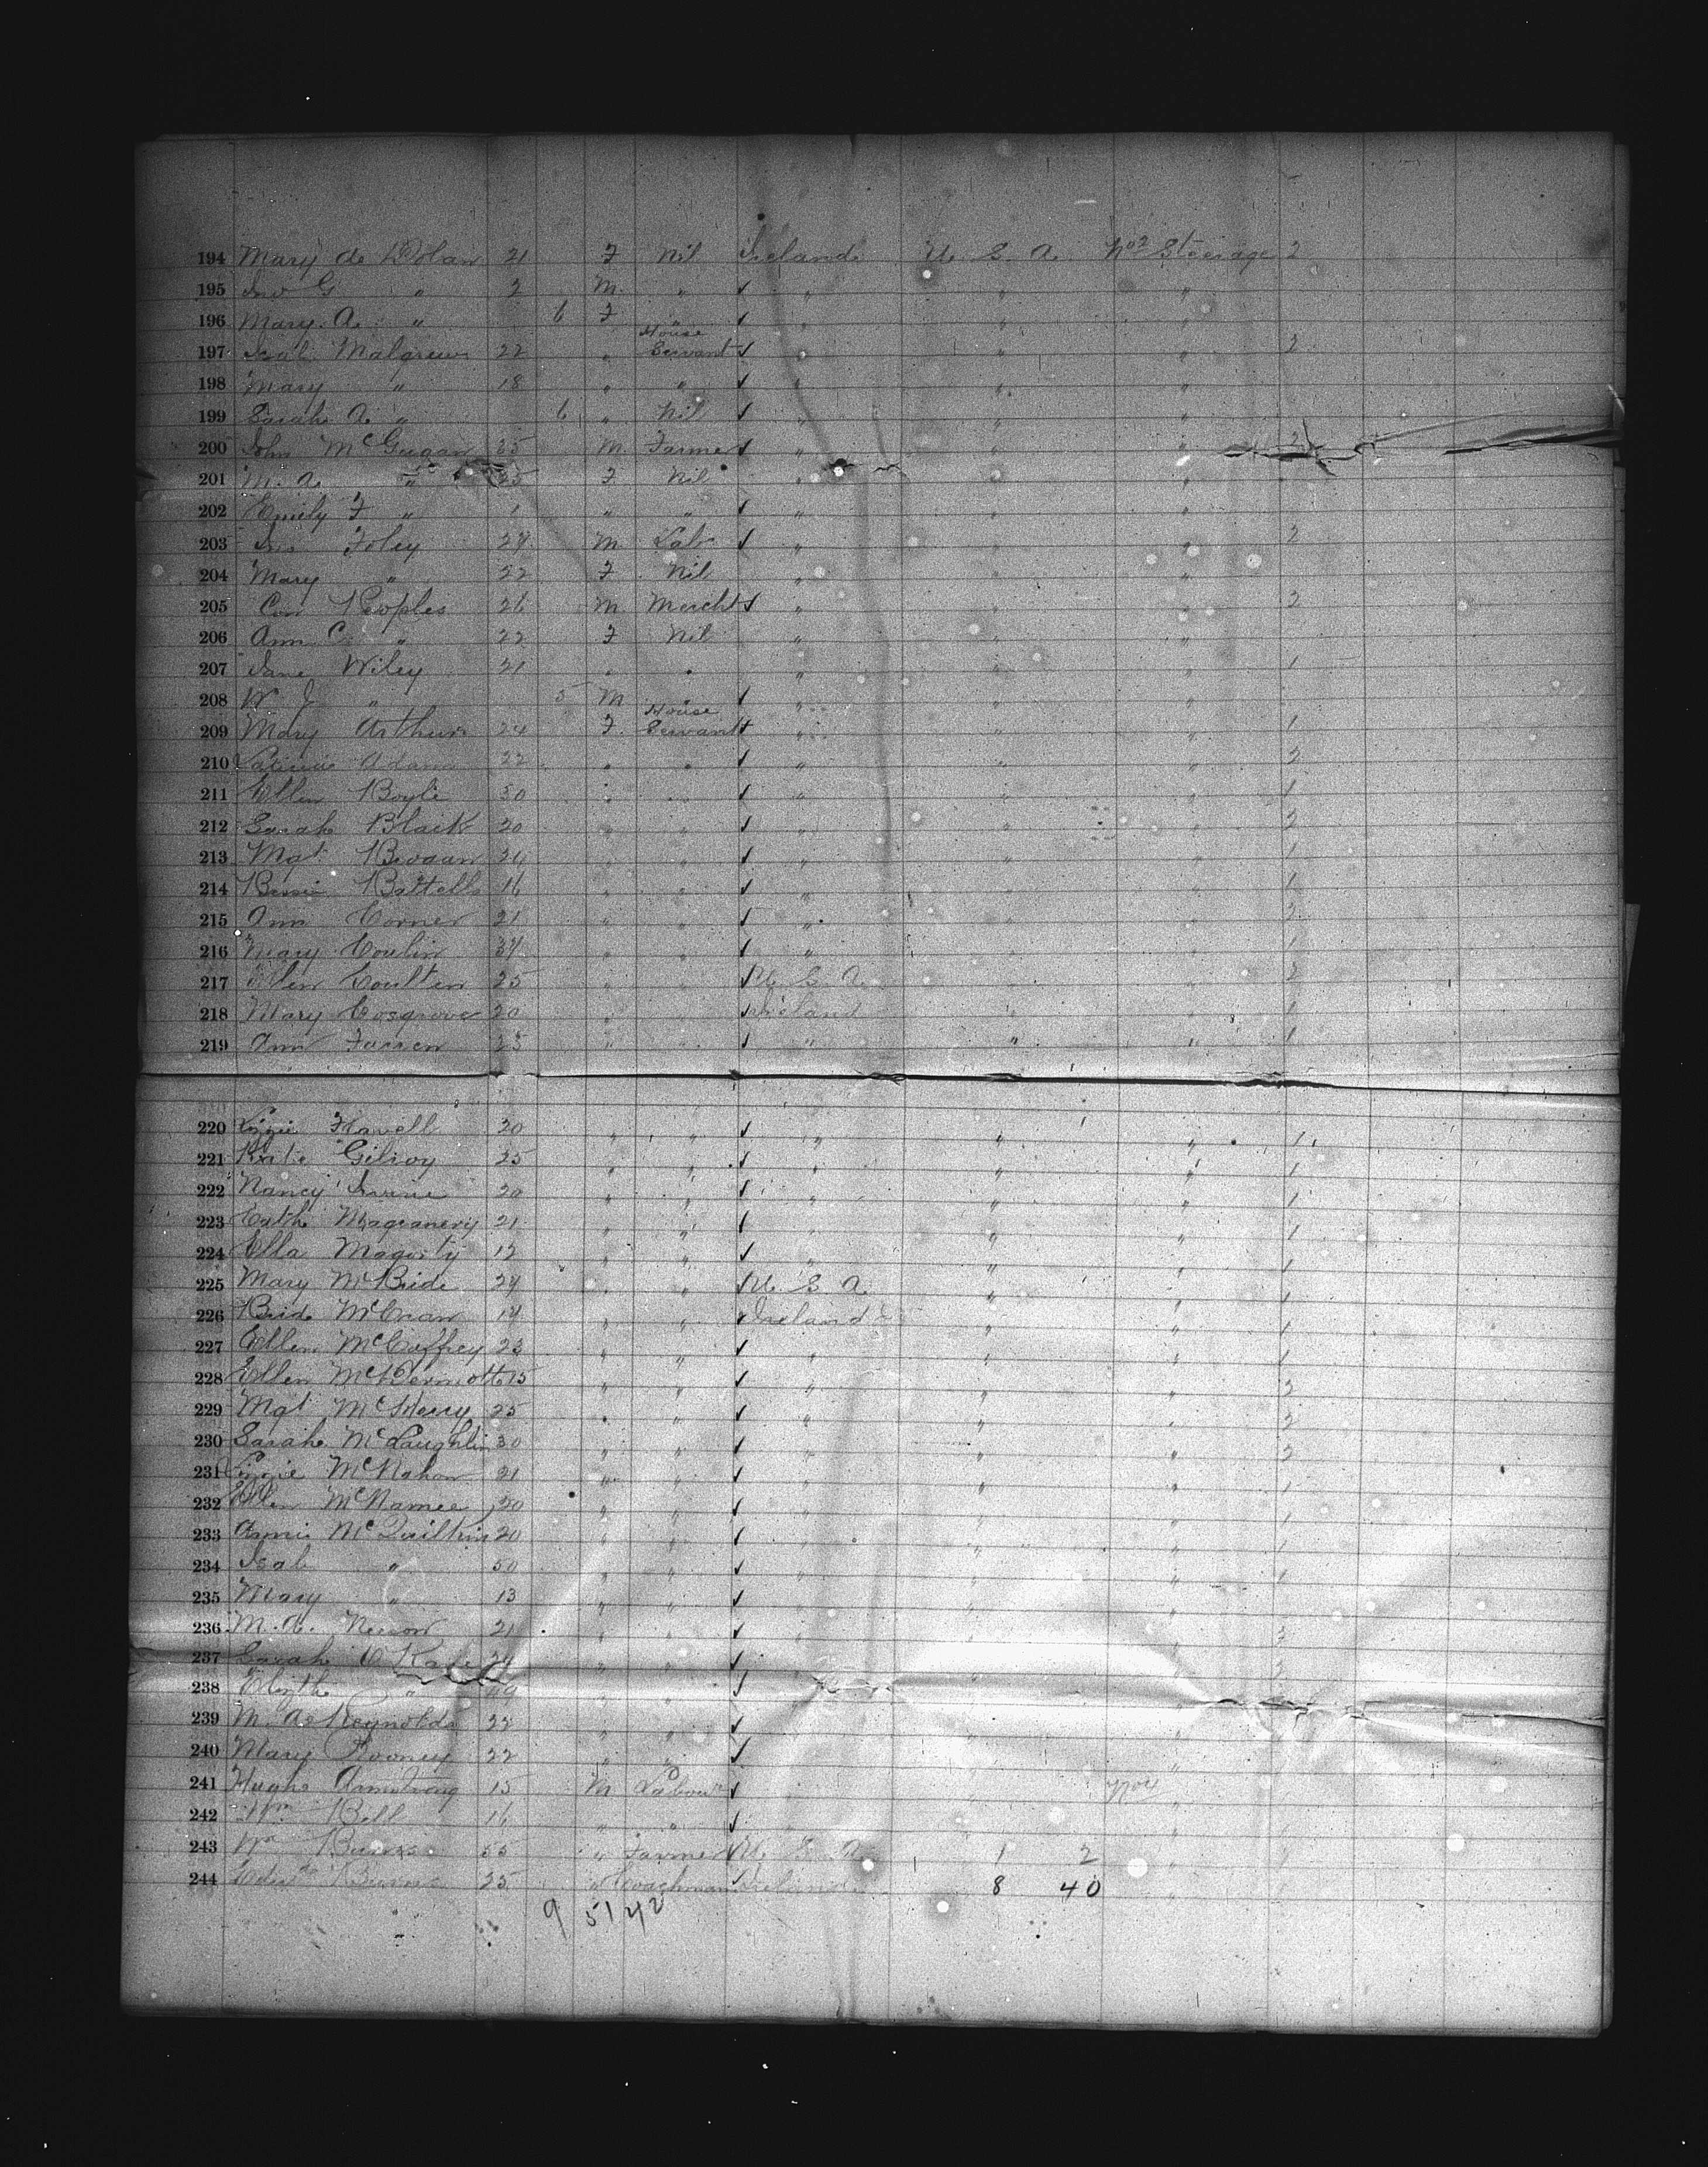 194 Mary de Dolan 21 F Nil Ireland U. S. A. No 2 Steerage 2
195 Jno G " 2 M " " " "
196 Mary. A. " 6 F " " "
House
197 Isab. Malgrew 22 " Servant " " " 2
198 Mary " 18 " " " " "
199 Sarah A. " 6 " Nil " " "
200 John McGugan 35 M Farmer " " " 2
201 M. A. " 25 F Nil " " "
202 Emily F " 1 " " " " "
203 Foley 27 M Labr " " " 2
204 Mary " 22 F Nil " " "
205 Con Peoples 26 M Mercht " " " 2
206 Ann C. " 22 F Nil " " "
207 Jane Wiley 21 " " " " " 1
208 W. J. " 5 M " " "
House
209 Mary Arthurs 24 F Servant " " " 1
210 Adams 22 " " " " " 2
211 Ellen Boyle 30 " " " " " 1
212 Sarah Black 20 " " " " " 2
213 Mgt Brogan 24 " " " " " 1
214 Bessie Battells 16 " " " " " 1
215 Ann Corner 21 " " " " " 2
216 Mary Conlin 37 " " " " " 1
217 Ellen Coulter 25 " " U. S. A. " " 2
218 Mary Cosgrove 20 " " Ireland " " 1
219 Ann Farren 25 " " " " " 1
220 Lizzie Flavell 20 " " " " " 1
221 Kate Gilroy 25 " " " " " 1
222 Nancy Irvine 20 " " " " " 1
223 Cath Magranery 21 " " " " " 1
224 Ella Magorty 12 " " " " " 1
225 Mary McBride 27 " " U. S. A " " 1
226 Brid McCran 14 " " Ireland " " 1
227 Ellen McCaffrey 23 " " " " " 1
228 Ellen McDermott 15 " " " " " 2
229 Mgt McHenry 25 " " " " " 2
230 Sarah McLaughlin 30 " " " " " 2
231 Lizzie McMahon 21 " " " " " 1
232 Ellen McNamee 20 " " " " " 1
233 Annie McQuilkin 20 " " " " " 1
234 Isab " 50 " " " " " 1
235 Mary " 13 " " " " "
236 M. A. 21 " " " " " 2
237 Sarah O'Kane 24 " " " " " 2
238 " " " " "
239 M. A. Reynolds 22 " " " " "
240 Mary Rooney 22 " " " " "
241 Hugh Armstrong 15 M Labour " " No 1 "
242 Wm Bell 16 " " " " "
243 Wm Burns 55 " Farmer U. S. A. " 1 2 "
244 Burns 25 " Coachman Ireland " 8 40 "
9 51 42